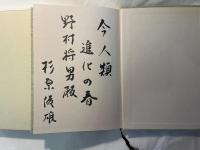 今人類
進化の春
野村将男殿
杉原俊雄